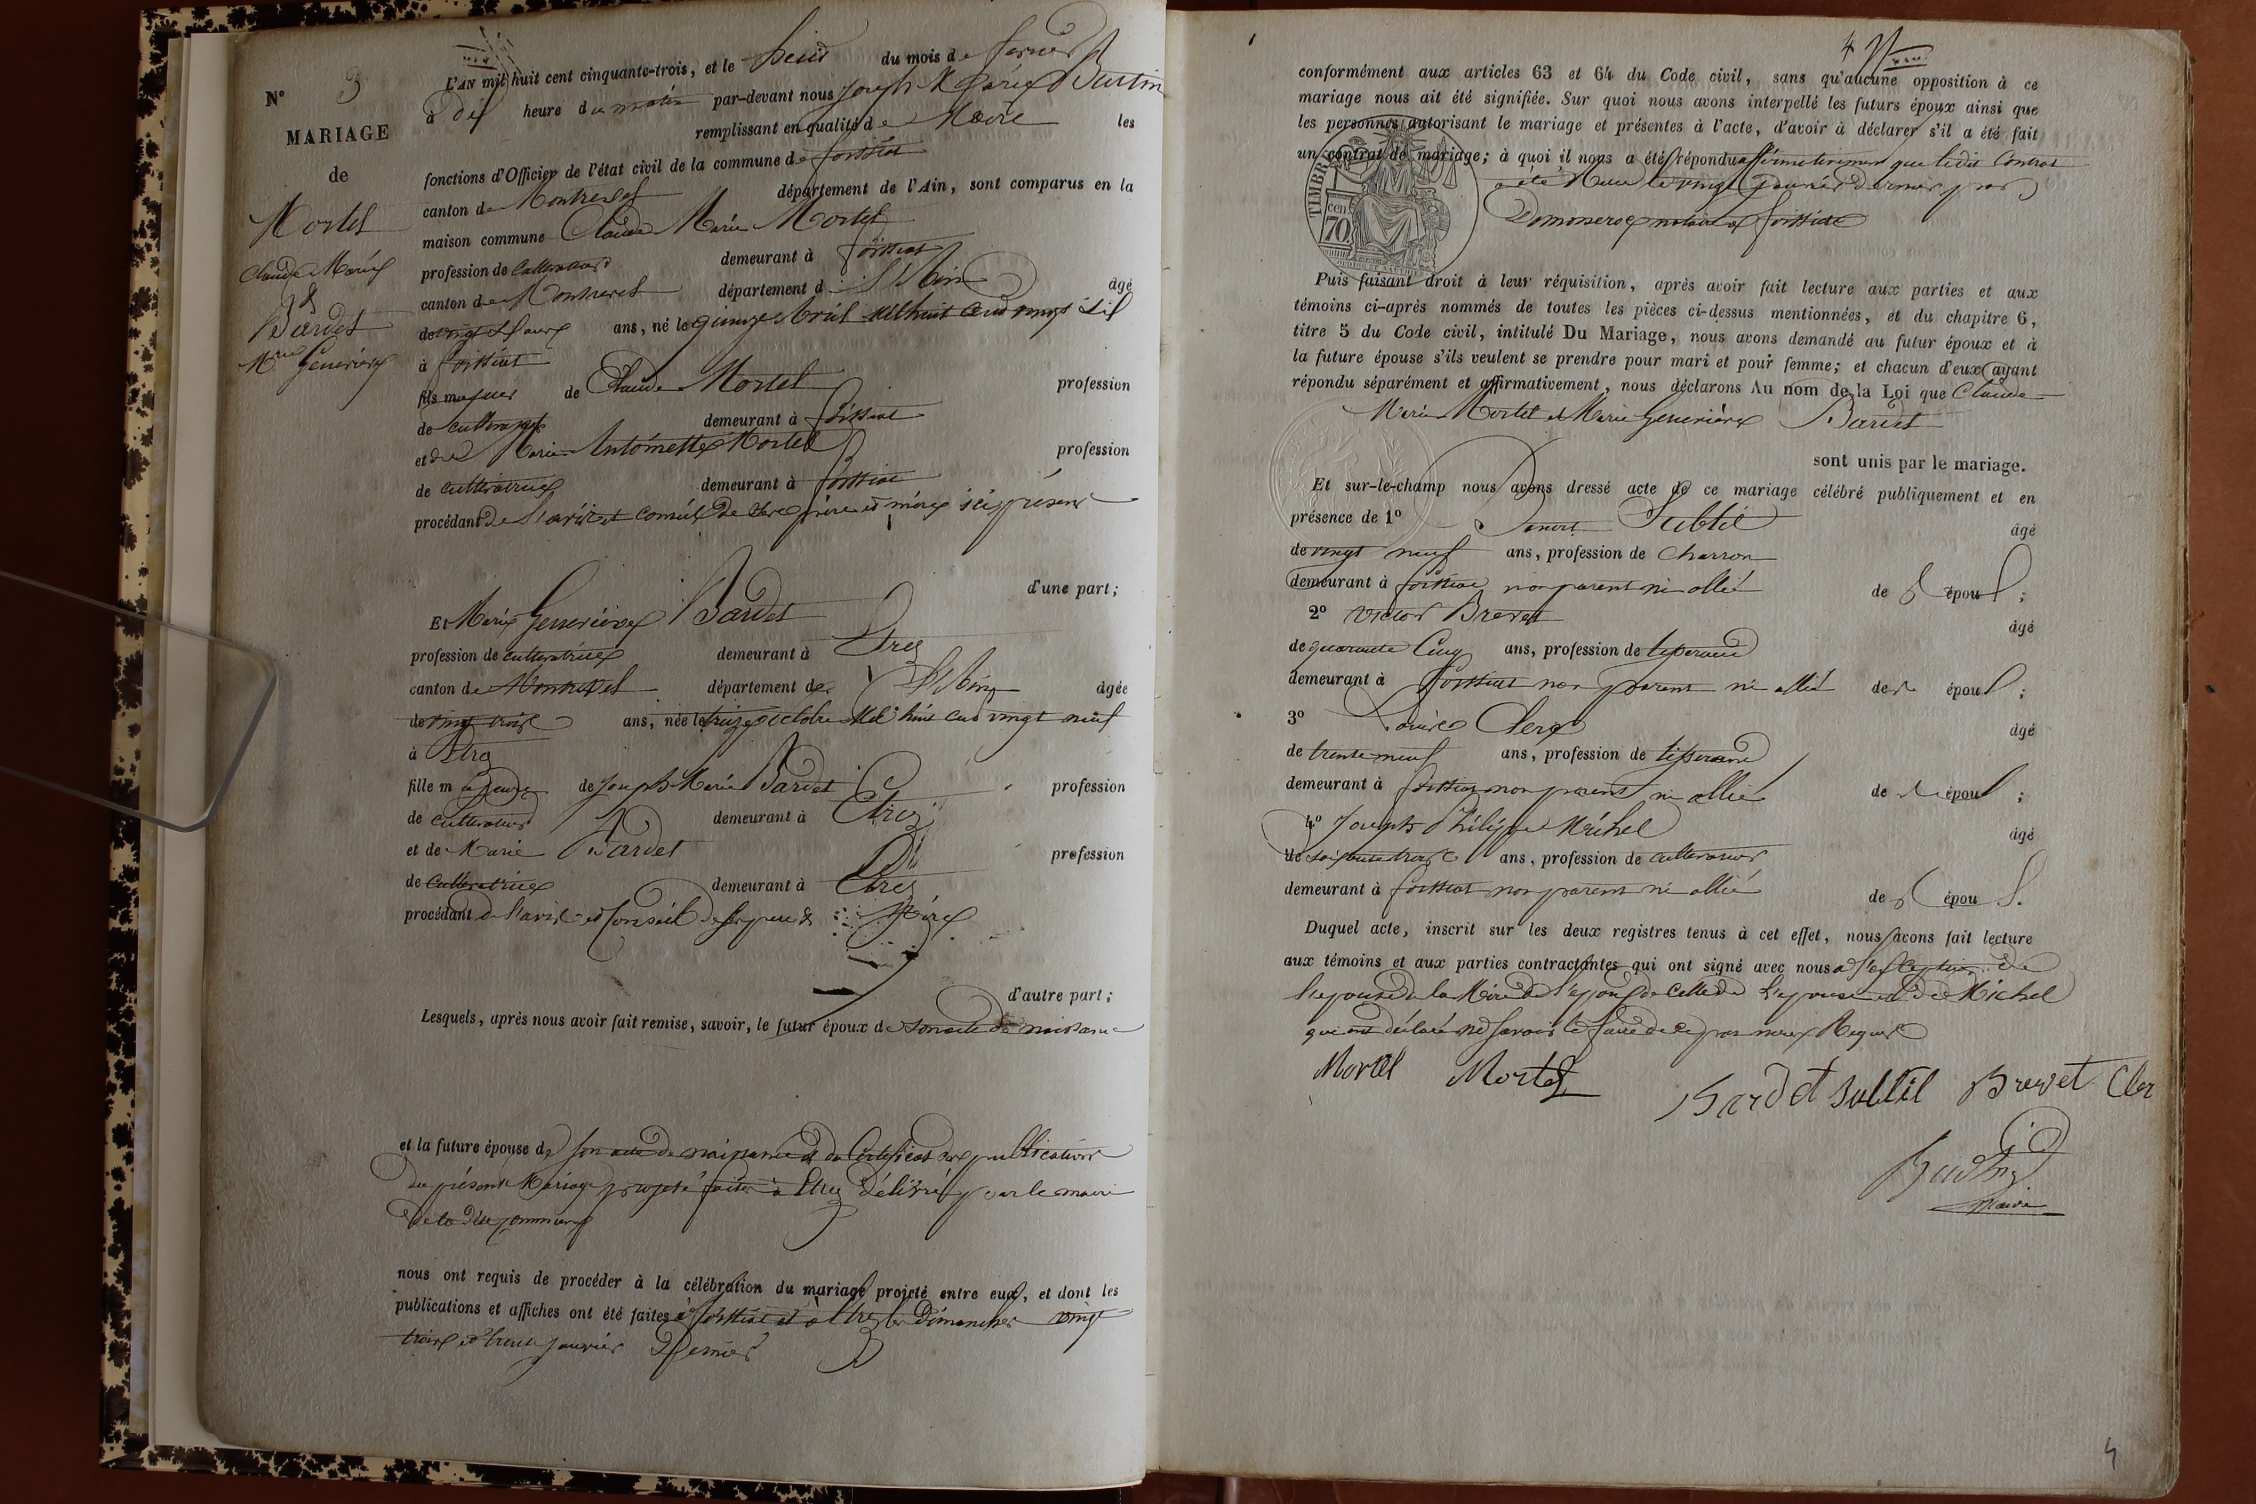 N° 3
MARIAGE
de
Mortel
Claude Marie
&
Bardet
Mrie Geneviève
L'AN mil huit cent cinquante-trois, et le huit du mois de fevrier
à dix heure du matin par-devant nous Joseph Marie Bustin
remplissant en qualité de Maire les
fonctions d'Officier de l'état civil de la commune de foissiat
canton de Montrevel département de l'Ain, sont comparus en la
maison commune Claude Marie Mortel
profession de Cultivateur demeurant à foissiat
canton de Montrevel département de L'Ain âgé
de vingt ans, né le quinze Avril mil huit cent vingt
à foissiat
fils majeur de Claude Mortel profession
de cultivateur demeurant à foissiat
et de Marie Antoinette Mortel profession
de cultivatrice demeurant à foissiat
procédant de l'avis et conseil de ses père et mère ici présens
d'une part;
Et Marie Geneviève Bardet
profession de cultivatrice demeurant à Etrez
canton de Montrevel département de L'Ain âgée
de vingt trois ans, née le treize octobre Mil huit cent vingt neuf
à Etrez
fille majeure de Joseph Marie Bardet profession
de cultivateur demeurant à Etrez
et de Marie Bardet profession
de Cultivatrice demeurant à Etrez
procédant de l'avis et Conseil de ses père & Mère
d'autre part;
Lesquels, après nous avoir fait remise, savoir, le futur époux de son acte de naissance
et la future épouse de son acte de naissance et du Certificat des publications
du présent Mariage projeté faites à Etrez délivré par le maire
de la dite commune
nous ont requis de procéder à la célébration du mariage projeté entre eux, et dont les
publications et affiches ont été faites à foissiat et à Etrez les Dimanches vingt
trois et trente janvier Dernier
4
conformément aux articles 63 et 64 du Code civil, sans qu'aucune opposition à ce
mariage nous ait été signifiée. Sur quoi nous avons interpellé les futurs époux ainsi que
les personnes autorisant le mariage et présentes à l'acte, d'avoir à déclarer s'il a été fait
un contrat de mariage; à quoi il nous a été répondu affirmativement que ledit Contrat
a été Recu le vingt Janvier dernier par
notaire à foissiat
TIMBRE
70 cen
Puis faisant droit à leur réquisition, après avoir fait lecture aux parties et aux
témoins ci-après nommés de toutes les pièces ci-dessus mentionnées, et du chapitre 6,
titre 5 du Code civil, intitulé Du Mariage, nous avons demandé au futur époux et à
la future épouse s'ils veulent se prendre pour mari et pour femme; et chacun d'eux ayant
répondu séparément et affirmativement, nous déclarons Au nom de la Loi que Claude
Marie Mortel et Marie Geneviève Bardet
sont unis par le mariage.
Et sur-le-champ nous avons dressé acte de ce mariage célébré publiquement et en
présence de 1° Benoit Subtil âgé
de vingt neuf ans, profession de Charron
demeurant à foissiat non parent ni allié de s époux;
2° Victor Brevet âgé
de quarante Cinq ans, profession de tisserand
demeurant à foissiat non parent ni allié des époux;
3° Clerc âgé
de trente neuf ans, profession de tisserand
demeurant à foissiat non parent ni allié des époux;
4° Joseph Philippe Michel âgé
de soixante trois ans, profession de cultivateur
demeurant à foissiat non parent ni allié des époux.
Duquel acte, inscrit sur les deux registres tenus à cet effet, nous avons fait lecture
aux témoins et aux parties contractantes qui ont signé avec nous à l'exception de
l'epouse de la Mère de l'epoux de Celle de l'epouse et de Michel
qui ont déclaré ne savoir le faire de ce par nous Requis
Mortel Mortel Bardet Subtil Brevet Cler
maire
4